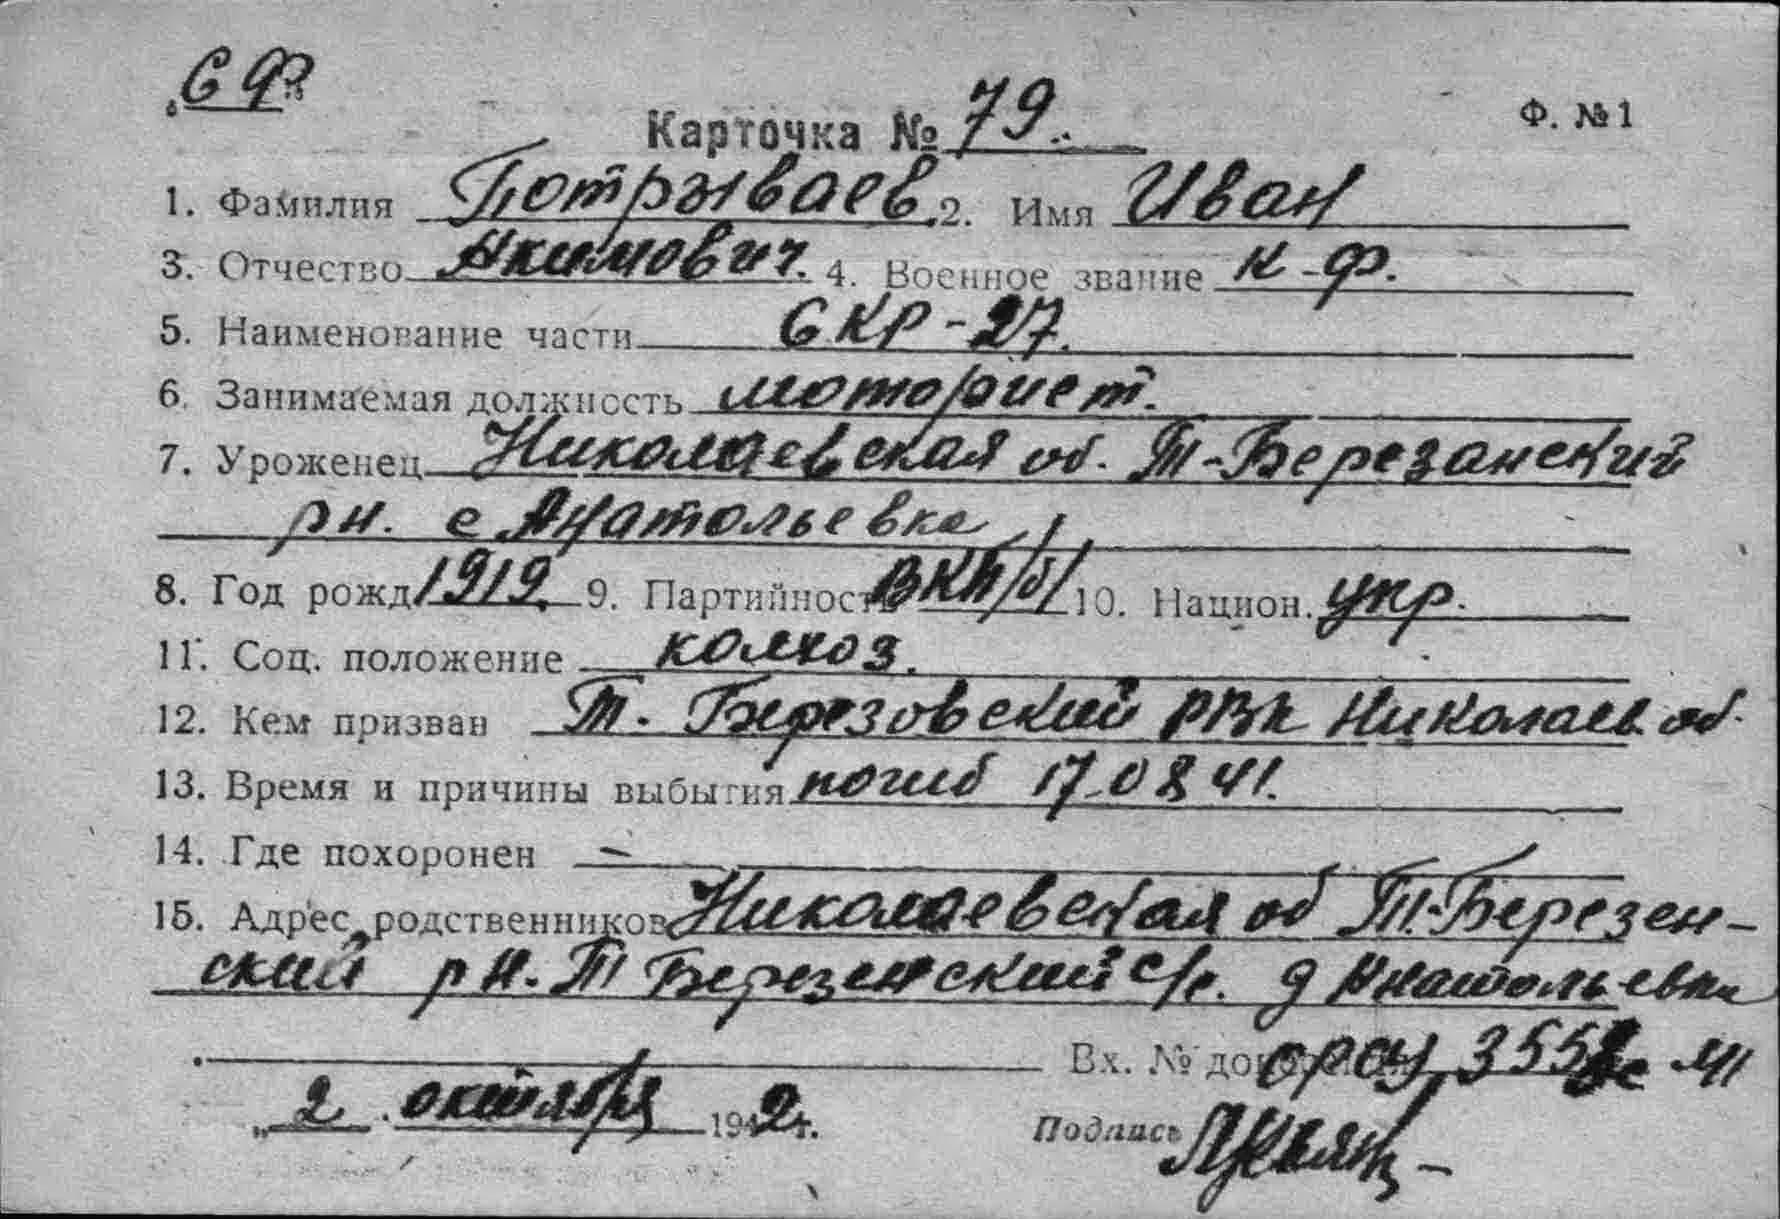 СФ
Карточка № 79. Ф. №1
1. Фамилия Потрываев 2. Имя Иван
3. Отчество Акимович. 4. Военное звание к-ф.
5. Наименование части СКР-27.
6. Занимаемая должность моторист.
7. Уроженец Николаевская об. Т-Березанский
рн. с Анатольевка
8. Год рожд 1919. 9. Партийность ВКП/б/ 10. Национ. укр.
11. Соц. положение колхоз.
12. Кем призван Т. Березовский РВК Николаев. об.
13. Время и причины выбытия погиб 17.08 41.
14. Где похоронен —
15. Адрес родственников Николаевская об Т.-Березен-
ский рн. Т Березенский с/с. д Анатольевка
Вх. №
„ 2 . октября 1942г. Подпись